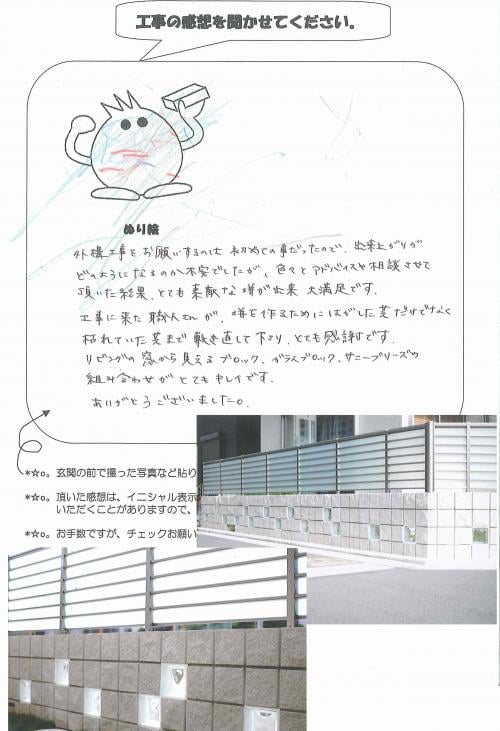 工事の感想を聞かせてください。
ぬり絵
外構工事をお願いするのは 初めての事だったので、出来上がりが
どのようになるのか不安でしたが、色々とアドバイスや相談させて
頂いた結果、とても素敵な塀が出来 大満足です。
工事に来た職人さんが、塀を作るためにはがした芝だけでなく
枯れていた芝まで敷き直して下さり、とても感謝です。
リビングの窓から見えるブロック、ガラスブロック、サニーブリーズの
組み合わせが とてもキレイです。
ありがとうございました。
*☆o。玄関の前で撮った写真など貼り
*☆o。頂いた感想は、イニシャル表示
いただくことがありますので、
*☆o。お手数ですが、チェックお願い